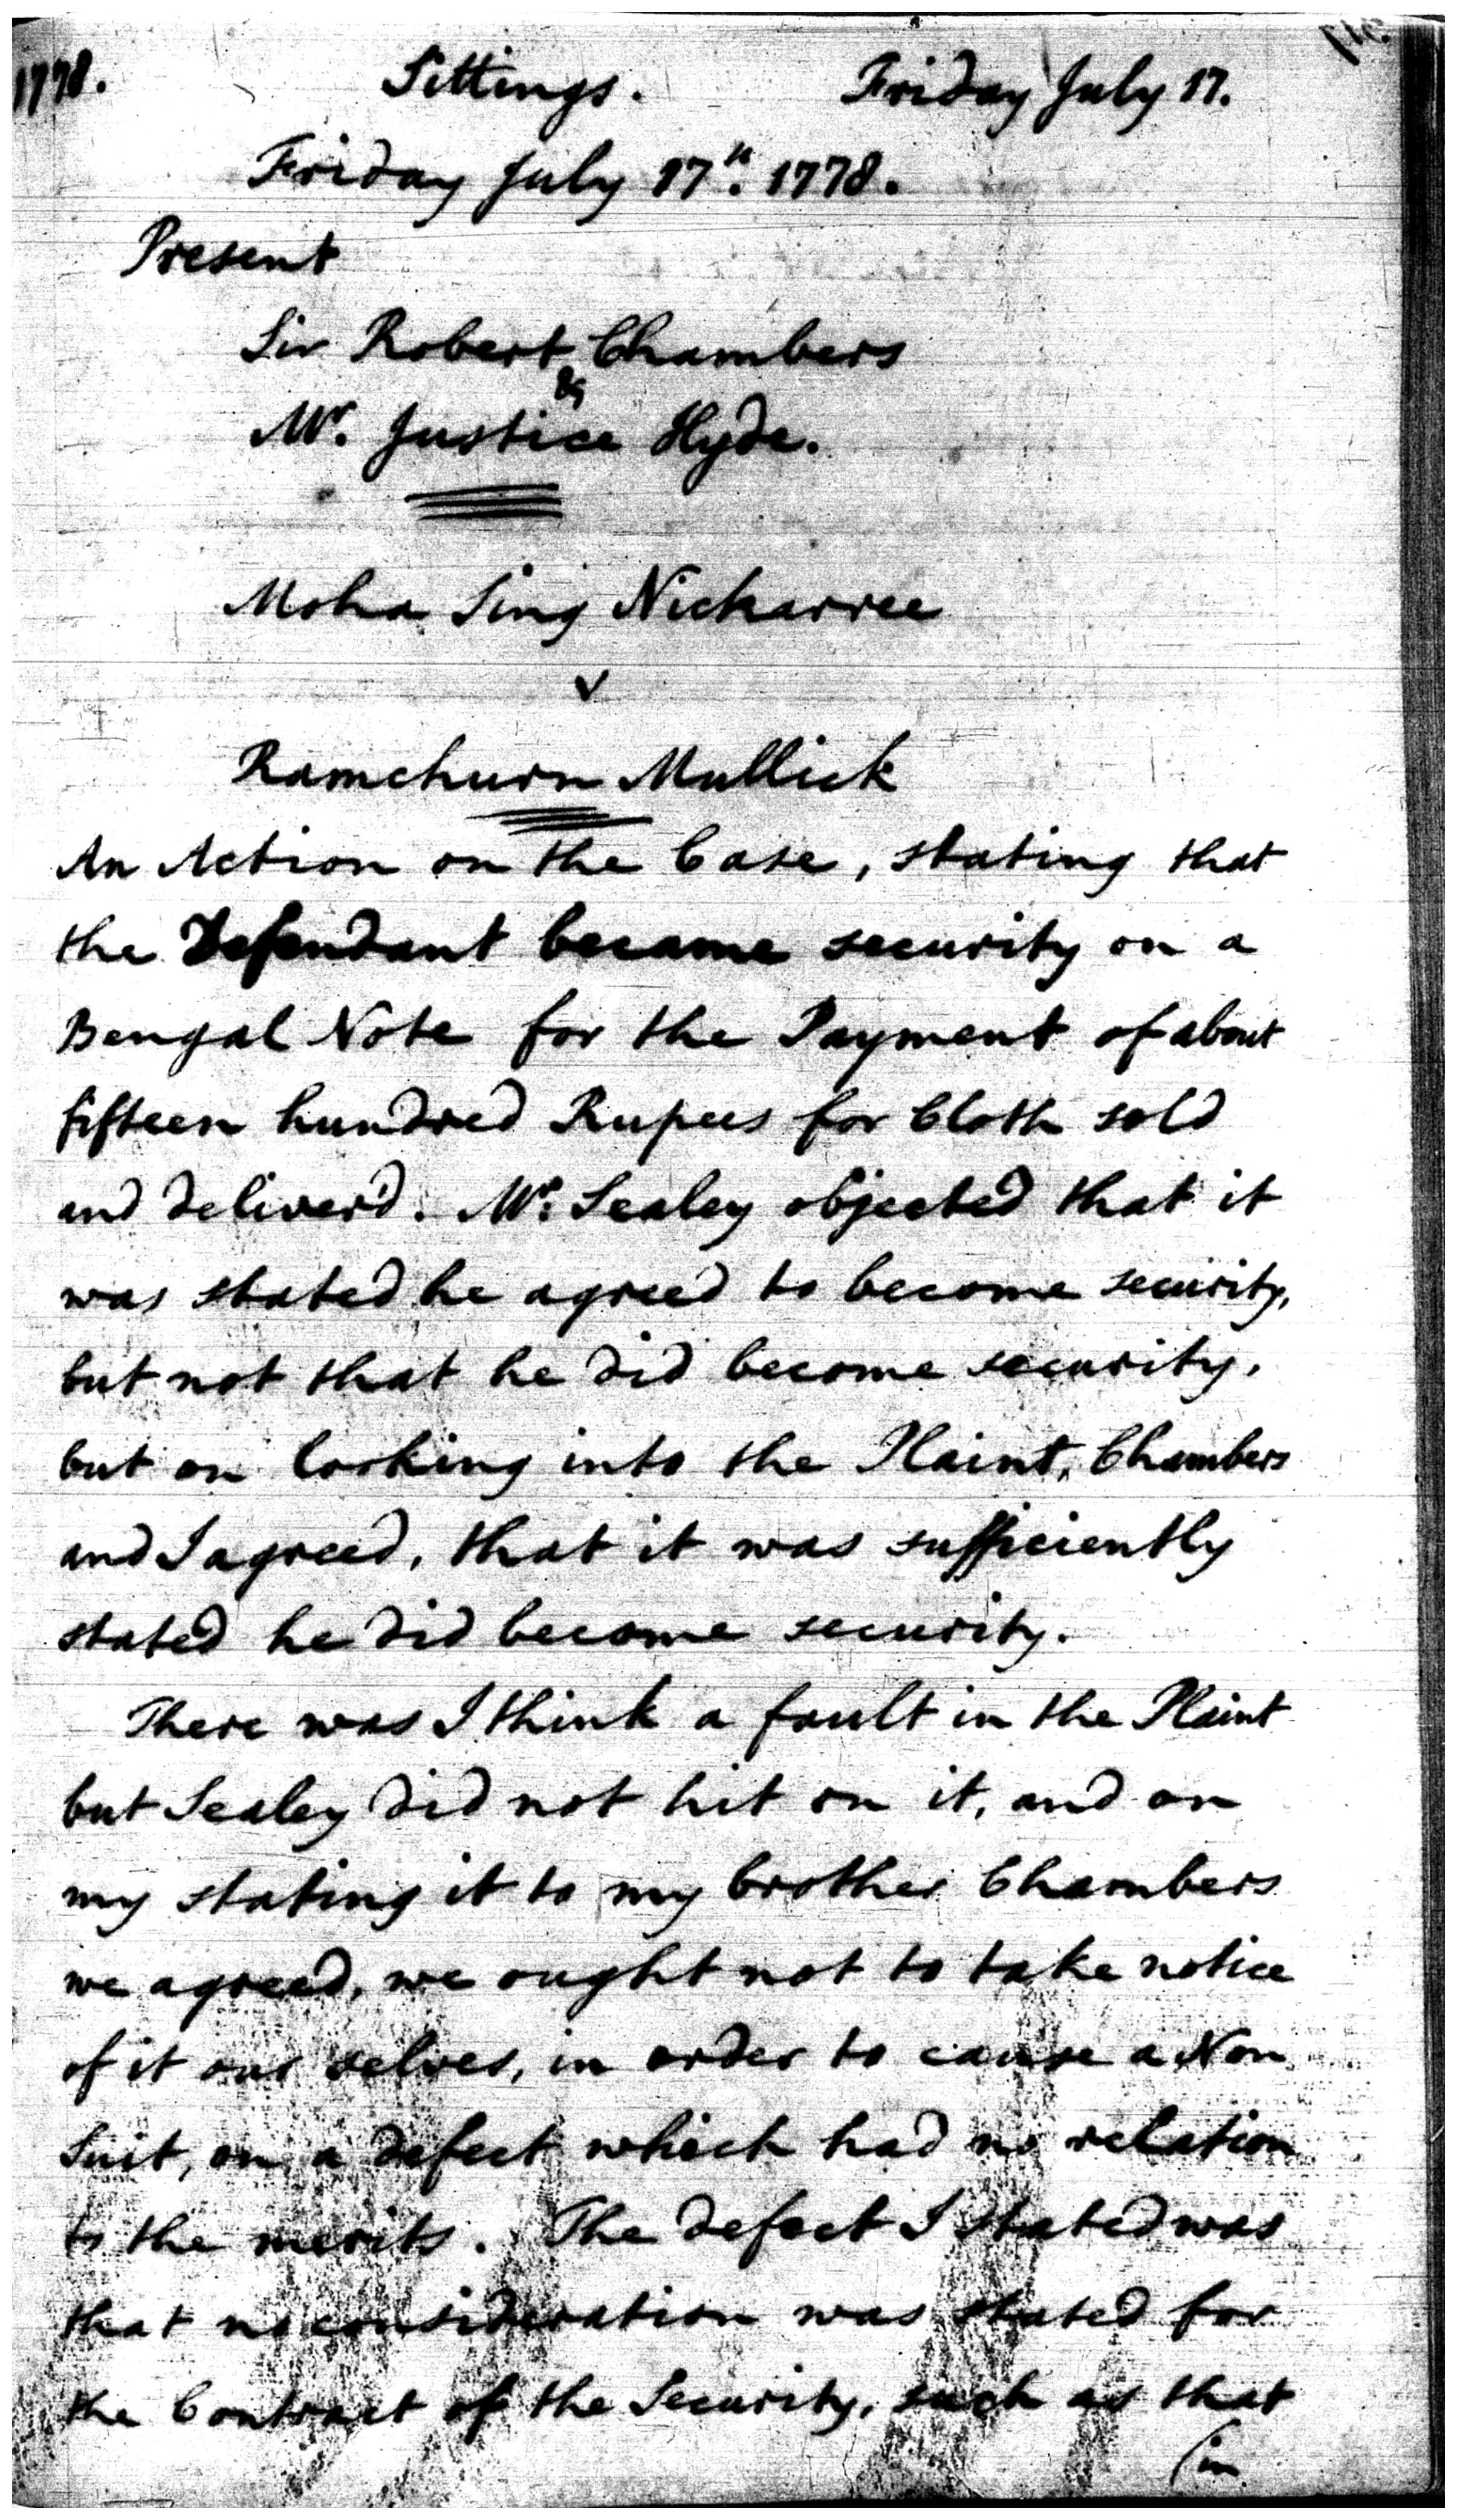 1778. Sittings. Friday July 17.
Friday July 17th. 1778.
Present
Sir Robert Chambers
&
Mr. Justice Hyde.
Moha Sing Nickarree
v
Ramchurn Mullick
An Action on the Case, stating that
the Defendant became security on a
Bengal Note for the Payment of about
fifteen hundred Rupees for Cloth sold
and deliver'd. Mr. Sealey objected that it
was stated he agreed to become security,
but not that he did become security,
but on looking into the Plaint, Chambers
and I agreed, that it was sufficiently
stated he did become security.
There was I think a fault in the Plaint
but Sealey did not hit on it, and on
my stating it to my brother Chambers
we agreed, we ought not to take notice
of it our selves, in order to cause a Non
Suit, on a defect which had no relation
to the merits. The defect I stated was
that no consideration was stated for
the Contract of the Security, such as that
(in